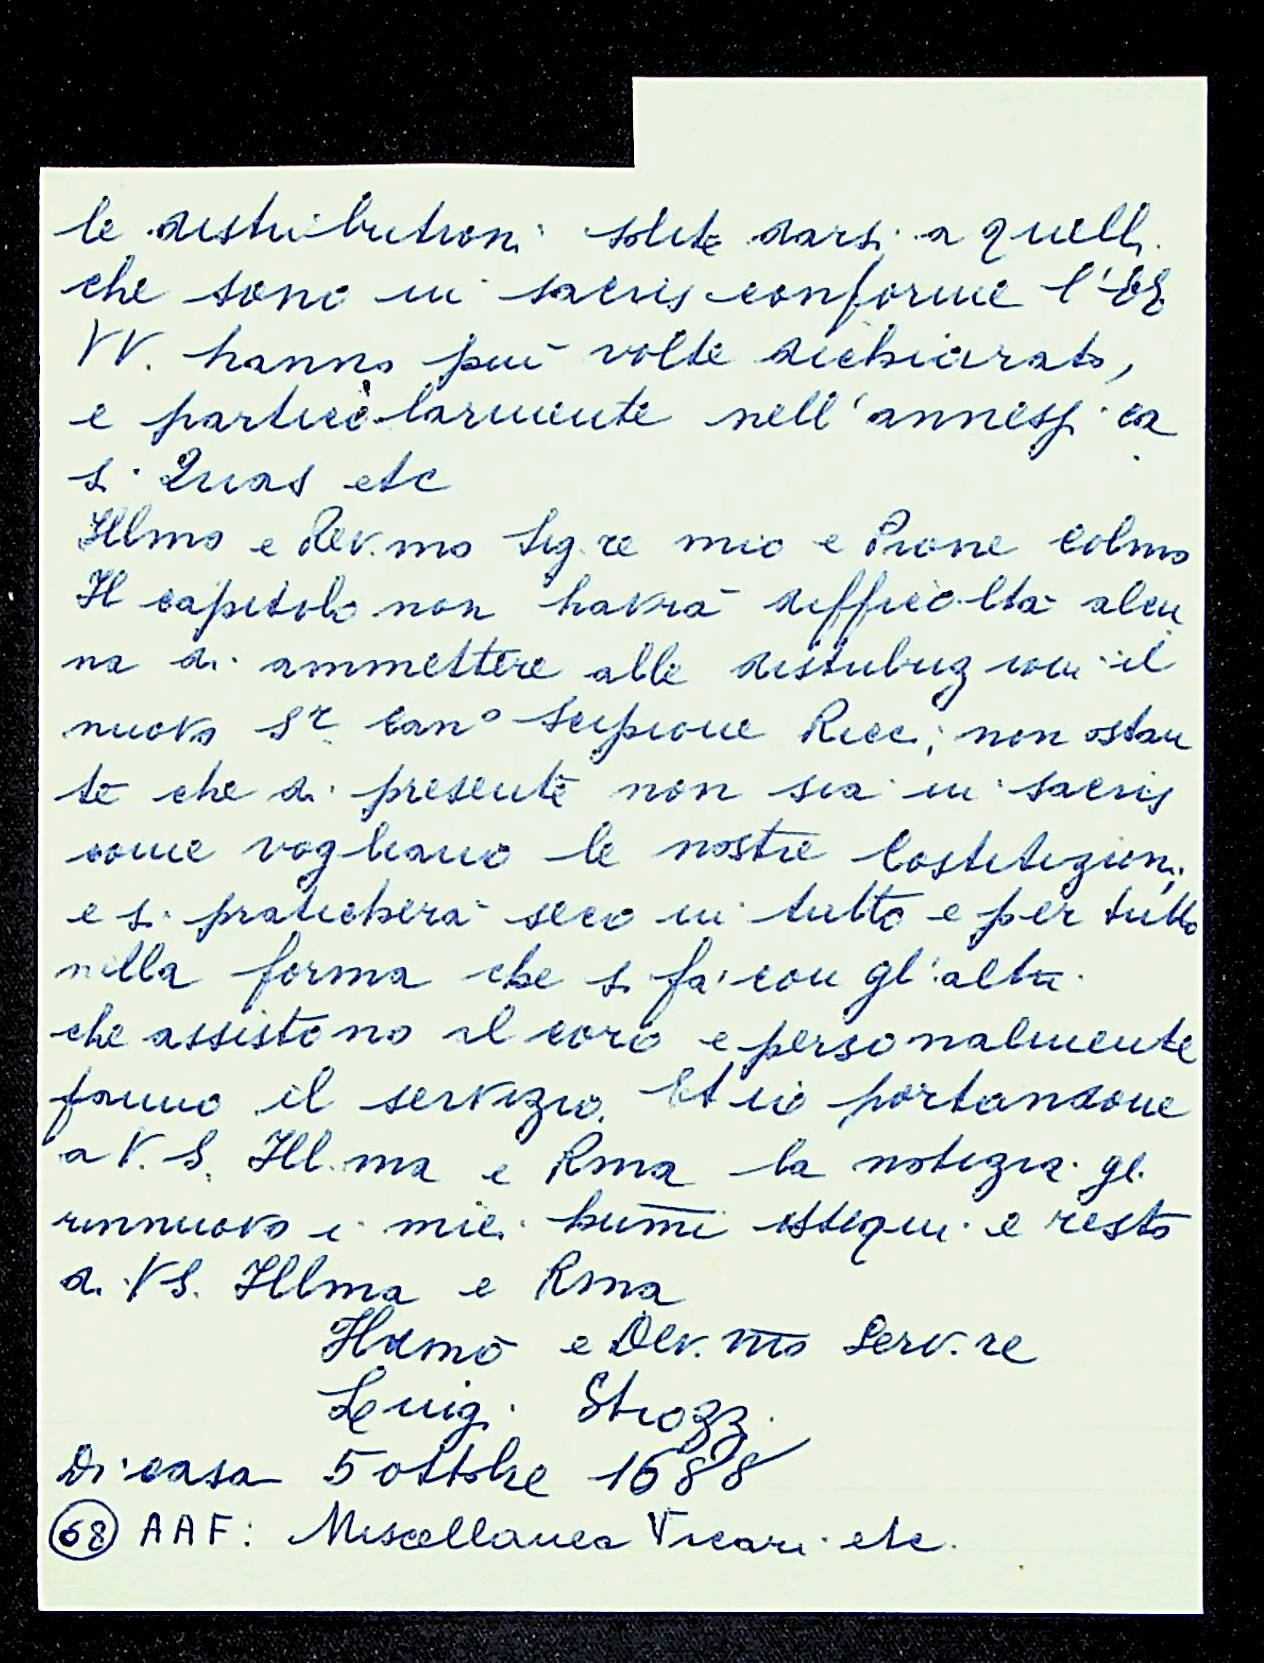 le distributioni solite darsi a quelli
che sono in sacris conforme l'EE
VV. hanno più volte dichiarato,
e particolarmente nell'annessi ca
si. Quas etc
Ill.mo e Rev.mo Sig.re mio e Prone Colmo
Il capitolo non havrà difficoltà alcu
na di ammettere alle distribuzioni il
nuovo Sr. Can° Scipione Ricci, non ostan
te che di presente non sia in sacris
come vogliano le nostre Costituzioni,
e si praticherà seco in tutto e per tutto
nella forma che si fa con gl'altri
che assistono al coro e personalmente
fanno il servizio. Et io portandone
a V. S. Ill.ma e Rma la notizia gl.
rinnuovo i miei humi ossequi e resto
di VS. Illma e Rma
Humo e Dev.mo Serv.re
Luigi Strozzi
Di casa 5 ottobre 1688
68 AAF: Miscellanea Vicari etc.